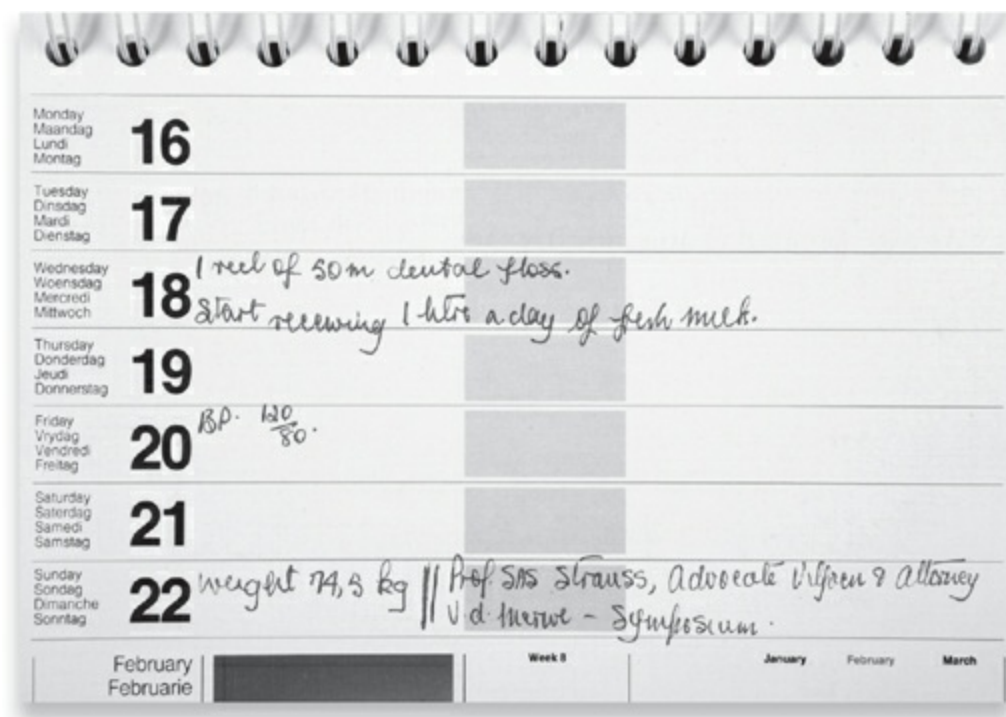 Monday
Maandag
Lundi
Montag
16
Tuesday
Dinsdag
Mardi
Dienstag
17
Wednesday
Woensdag
Mercredi
Mittwoch
18
1 reel of 50m dental floss.
Start receiving 1 litre a day of fresh milk.
Thursday
Donderdag
Jeudi
Donnerstag
19
Friday
Vrydag
Vendredi
Freitag
20
BP. 120
80.
Saturday
Saterdag
Samedi
Samstag
21
Sunday
Sondag
Dimanche
Sonntag
22
weight 74,5 kg || Prof. SAS Strauss, Advocate Viljoen & Attorney
v.d. Merwe - Symposium.
February
Februarie
Week 8
January February March